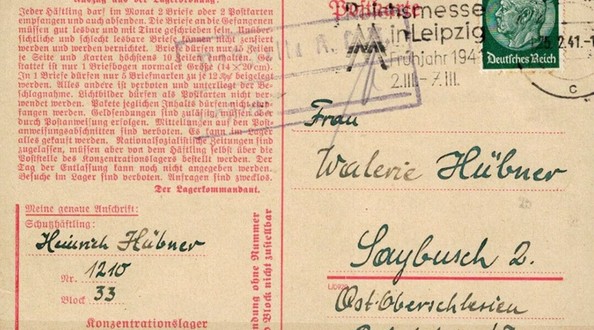 Auszug aus der Lagerordnung:
Jeder Häftling darf im Monat 2 Briefe oder 2 Postkarten
empfangen und auch absenden. Die Briefe an die Gefangenen
müssen gut lesbar und mit Tinte geschrieben sein. Unüber-
sichtliche und schlecht lesbare Briefe können nicht zensiert
werden und werden vernichtet. Briefe dürfen nur 15 Zeilen je
Seite und Karten höchstens 10 Zeilen enthalten. Ge-
stattet ist nur 1 Briefbogen normaler Größe (14×20cm).
In 1 Briefe dürfen nur 5 Briefmarken zu je 12 Rpf beigelegt
werden. Alles andere ist verboten und unterliegt der Be-
schlagnahme. Lichtbilder dürfen als Postkarten nicht ver-
wendet werden. Pakete jeglichen Inhalts dürfen nicht emp-
fangen werden. Geldsendungen sind zulässig, müssen aber
durch Postanweisung erfolgen. Mitteilungen auf den Post-
anweisungsabschnitten sind verboten. Es kann im Lager
alles gekauft werden. Nationalsozialistische Zeitungen sind
zugelassen, müssen aber von dem Häftling selbst über die
Poststelle des Konzentrationslagers bestellt werden. Der
Tag der Entlassung kann noch nicht angegeben werden.
Besuche im Lager sind verboten. Anfragen sind zwecklos.
Der Lagerkommandant.
Meine genaue Anschrift:
Schutzhäftling:
Heinrich Hübner
Nr. 1210
Block 33
Konzentrationslager
ndung ohne Nummer
Block nicht zustellbar
Postkarte
smesse
in Leipzig
Frühjahr 194
2.III.-7.III.
2.41.-1
c
Deutsches Reich
Frau
Walerie Hübner
Saybusch 2.
Ost-Oberschlesien